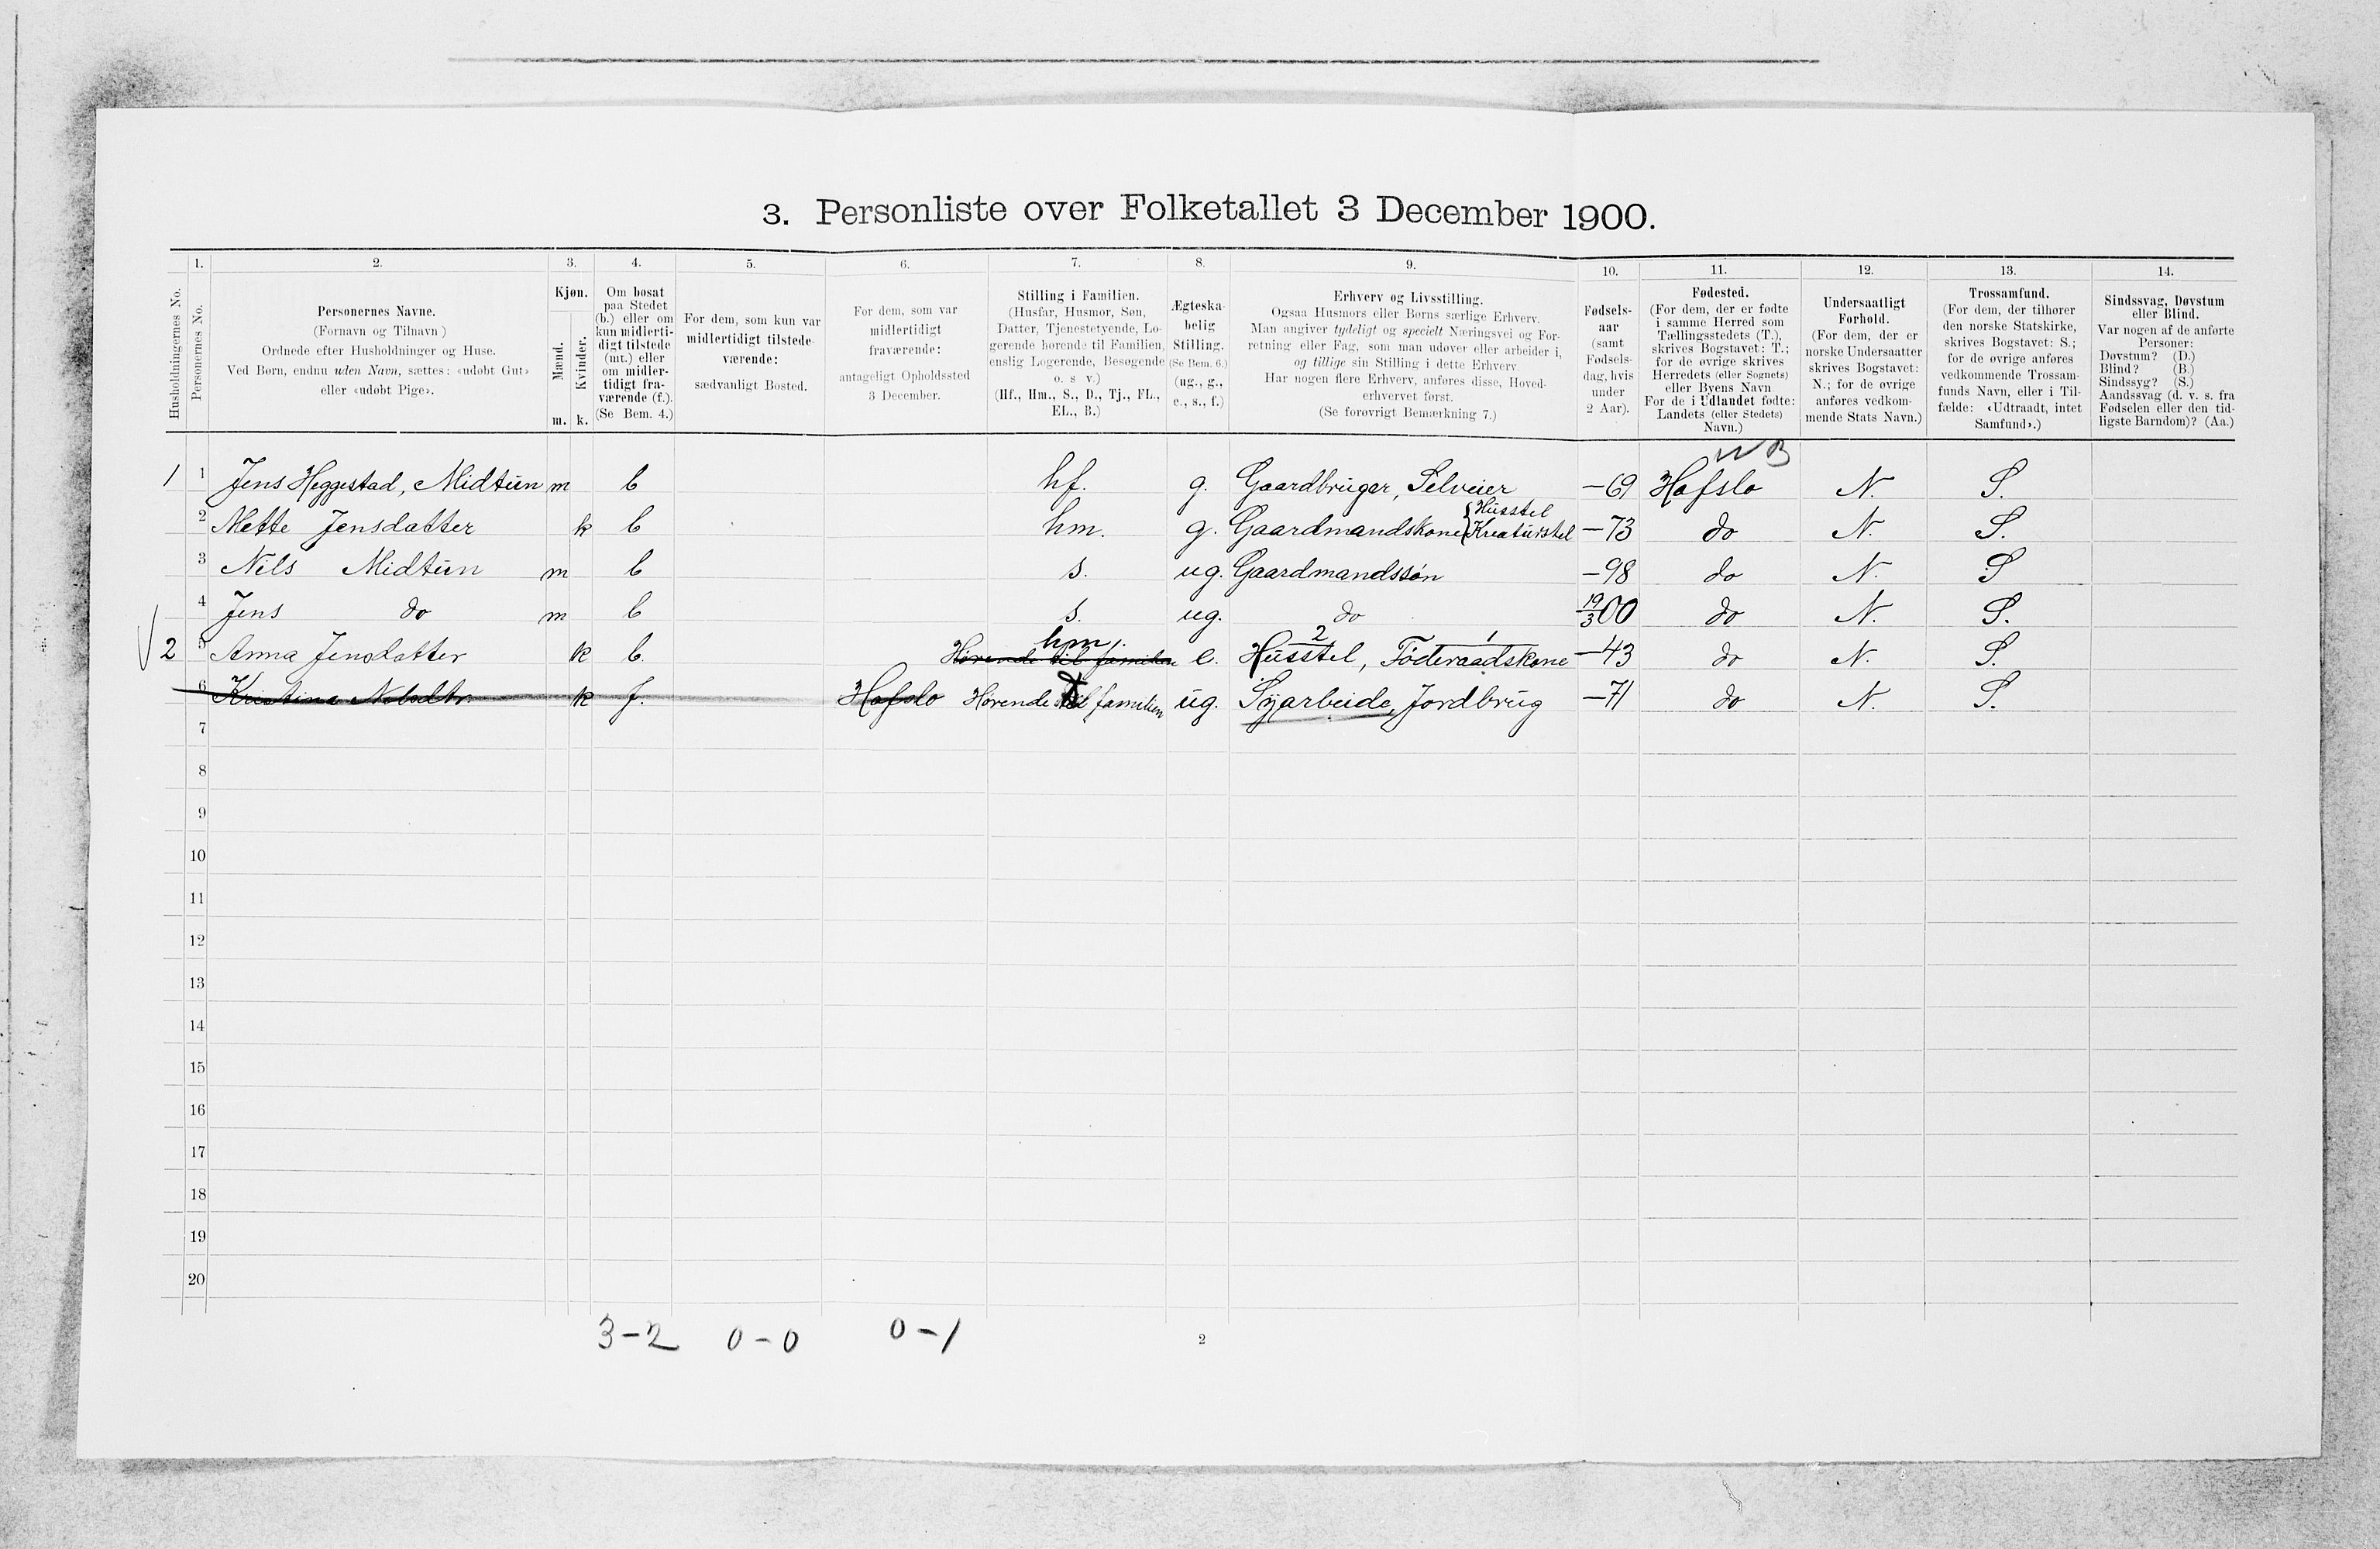 3. Personliste over Folketallet 3 December 1900.
1. 2. 3. 4. 5. 6. 7. 8. 9. 10. 11. 12. 13. 14.
Husholdningernes No.
Personernes No.
Personernes Navne.
(Fornavn og Tilnavn)
Ordnede efter Husholdninger og Huse.
Ved Børn, endnu uden Navn, sættes: «udøbt Gut»
eller «udøbt Pige».
Kjøn.
Mænd.
Kvinder.
m. k.
Om bosat
paa Stedet
(b.) eller om
kun midlerti-
digt tilstede
(mt.) eller
om midler-
tidigt fra-
værende (f.).
(Se Bem. 4.)
For dem, som kun var
midlertidigt tilstede-
værende:
sædvanligt Bosted.
For dem, som var
midlertidigt
fraværende:
antageligt Opholdssted
3 December.
Stilling i Familien.
(Husfar, Husmor, Søn,
Datter, Tjenestetyende, Lo-
gerende hørende til Familien,
enslig Logerende, Besøgende
o. s. v.)
(Hf., Hm., S., D., Tj., FL.,
EL., B.)
Ægteska-
belig
Stilling.
(Se Bem. 6.)
(ug., g.,
e., s., f.)
Erhverv og Livsstilling.
Ogsaa Husmors eller Børns særlige Erhverv.
Man angiver tydeligt og specielt Næringsvei og For-
retning eller Fag, som man udøver eller arbeider i,
og tillige sin Stilling i dette Erhverv.
Har nogen flere Erhverv, anføres disse, Hoved-
erhvervet først.
(Se forøvrigt Bemærkning 7.)
Fødsels-
aar
(samt
Fødsels-
dag, hvis
under
2 Aar).
Fødested.
(For dem, der er fødte
i samme Herred som
Tællingsstedets (T.),
skrives Bogstavet: T.;
for de øvrige skrives
Herredets (eller Sognets)
eller Byens Navn.
For de i Udlandet fødte:
Landets (eller Stedets)
Navn.)
Undersaatligt
Forhold.
(For dem, der er
norske Undersaatter
skrives Bogstavet:
N.; for de øvrige
anføres vedkom-
mende Stats Navn.)
Trossamfund.
(For dem, der tilhører
den norske Statskirke,
skrives Bogstavet: S.;
for de øvrige anføres
vedkommende Trossam-
funds Navn, eller i Til-
fælde: «Udtraadt, intet
Samfund».)
Sindssvag, Døvstum
eller Blind.
Var nogen af de anførte
Personer:
Døvstum? (D.)
Blind? (B.)
Sindssyg? (S.)
Aandssvag (d. v. s. fra
Fødselen eller den tid-
ligste Barndom)? (Aa.)
1 1 Jens Heggestad, Midtun m b hf. g. Gaardbruger, Selveier -69 Hafslo N. S.
Husstel
2 Mette Jensdatter k b hm. g. Gaardmandskone Kreaturstel -73 do N. S.
3 Nils Midtun m b s. ug. Gaardmandssøn -98 do N. S
4 Jens do m b s. ug. do 19/3 00 do N. S.
hm. 2 1
2 5 Anna Jensdatter k b. Hørende til familien e. Husstel, Føderaadskone -43 do N. S.
6 Kristina k f. Hafslo Hørende til familien ug. Syarbeide, Jordbrug -71 do N. S.
7
8
9
10
11
12
13
14
15
16
17
18
19
20
3-2 0-0 0-1
2